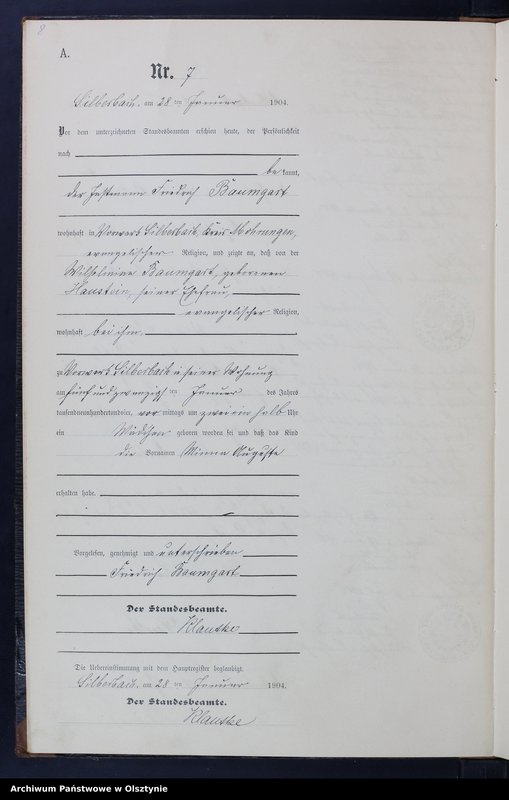 8
A.
Nr. 7
Silberbach, am 28 ten Januar 1904.
Vor dem unterzeichneten Standesbeamten erschien heute, der Persönlichkeit
nach
bekannt,
der Instmann Friedrich Baumgart
wohnhaft in Vorwerk Silberbach, Kreis Mohrungen,
evangelischer Religion, und zeigte an, daß von der
Wilhelmine Baumgart, geborenen
Haustein, seiner Ehefrau,
evangelischer Religion,
wohnhaft bei ihm,
zu Vorwerk Silberbach in seiner Wohnung
am fünf und zwanzigsten Januar des Jahres
tausendneunhundertundvier, vor mittags um zwei ein halb Uhr
ein Mädchen geboren worden sei und daß das Kind
die Vornamen Minna Auguste
erhalten habe.
Vorgelesen, genehmigt und unterschrieben
Friedrich Baumgart
Der Standesbeamte.
Klautke
Die Uebereinstimmung mit dem Hauptregister beglaubigt.
Silberbach, am 28 ten Januar 1904.
Der Standesbeamte.
Klautke
Archiwum Państwowe w Olsztynie